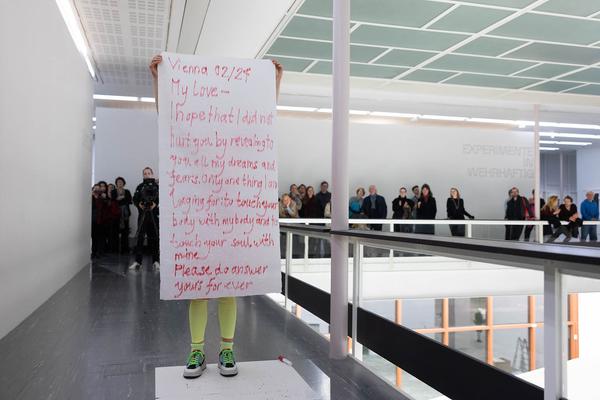 Vienna 02/24
My Love –
I hope that I did not
hurt you by revealing to
you all my dreams and
fears. Only one thing I am
longing for: to touch your
body with my body and to
touch your soul with
mine.
Please do answer
yours for ever
EXPERIMENTE
IN
WEHRHAFTIG